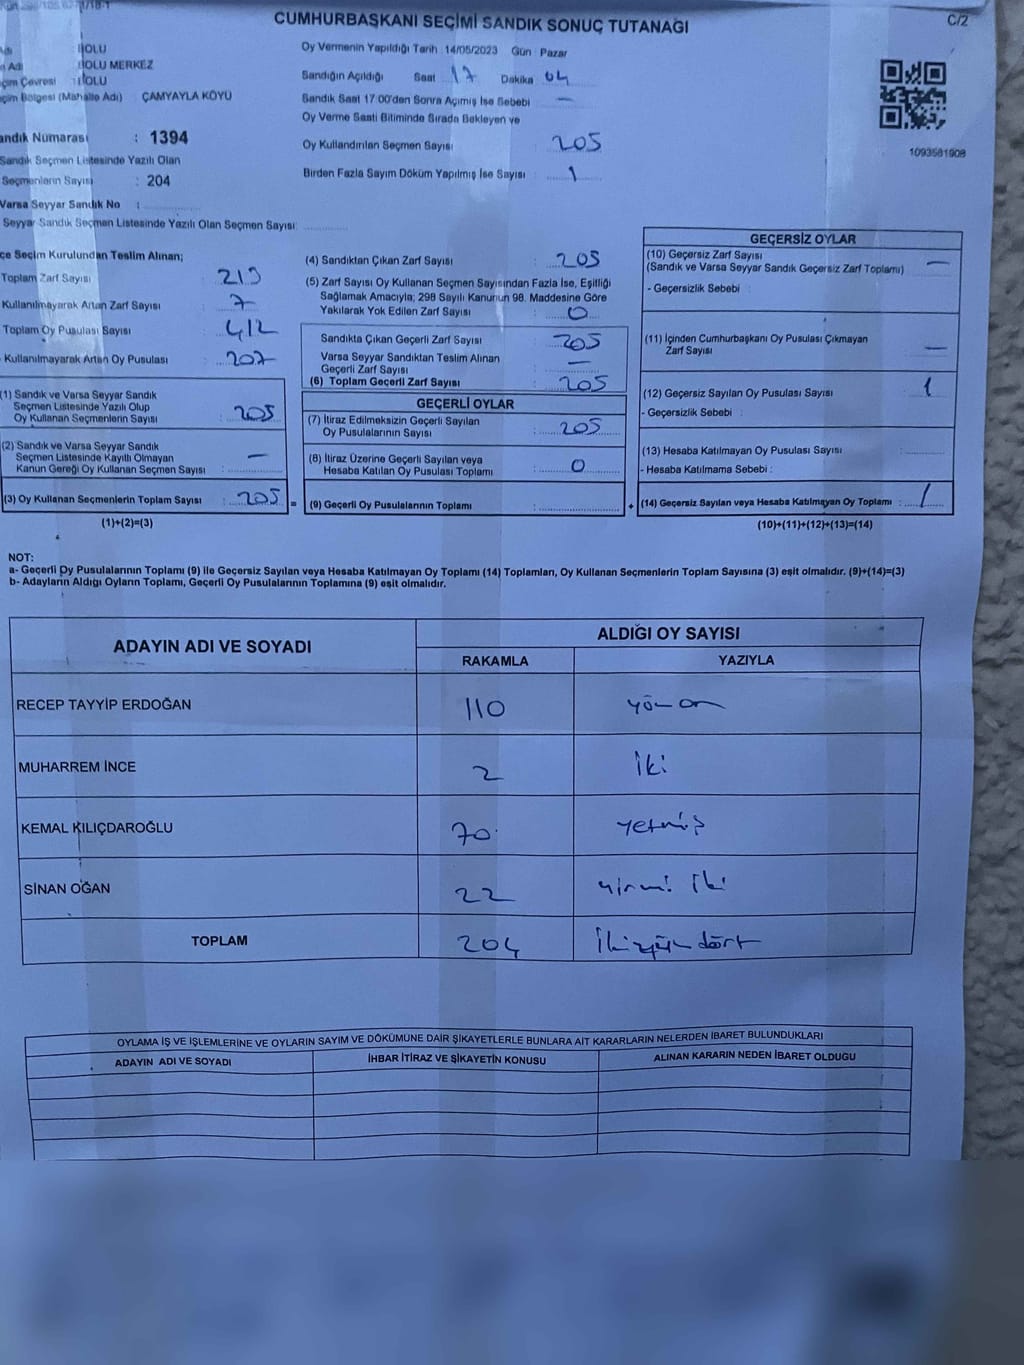 CUMHURBAŞKANI SEÇİMİ SANDIK SONUÇ TUTANAĞI
C/2
BOLU
BOLU MERKEZ
BOLU
ÇAMYAYLA KÖYÜ
Oy Vermenin Yapıldığı Tarih : 14/05/2023 Gün : Pazar
Sandığın Açıldığı Saat 17 Dakika 04
Sandık Saat 17:00'den Sonra Açımış İse Sebebi —
Oy Verme Saati Bitiminde Sırada Bekleyen ve
Oy Kullandırılan Seçmen Sayısı 205
Birden Fazla Sayım Döküm Yapılmış İse Sayısı 1
1093581908
andık Numarası : 1394
Sandık Seçmen Listesinde Yazılı Olan
Seçmenlerin Sayısı : 204
Varsa Seyyar Sandık No :
Seyyar Sandık Seçmen Listesinde Yazılı Olan Seçmen Sayısı:
çe Seçim Kurulundan Teslim Alınan;
Toplam Zarf Sayısı : 213
Kullanılmayarak Artan Zarf Sayısı : 7
Toplam Oy Pusulası Sayısı : 412
Kullanılmayarak Artan Oy Pusulası : 207
(1) Sandık ve Varsa Seyyar Sandık
Seçmen Listesinde Yazılı Olup
Oy Kullanan Seçmenlerin Sayısı : 205
(2) Sandık ve Varsa Seyyar Sandık
Seçmen Listesinde Kayıtlı Olmayan
Kanun Gereği Oy Kullanan Seçmen Sayısı : —
(3) Oy Kullanan Seçmenlerin Toplam Sayısı : 205 =
(1)+(2)=(3)
(4) Sandıktan Çıkan Zarf Sayısı : 205
(5) Zarf Sayısı Oy Kullanan Seçmen Sayısından Fazla İse, Eşitliği
Sağlamak Amacıyla; 298 Sayılı Kanunun 98. Maddesine Göre
Yakılarak Yok Edilen Zarf Sayısı : 0
Sandıkta Çıkan Geçerli Zarf Sayısı : 205
Varsa Seyyar Sandıktan Teslim Alınan
Geçerli Zarf Sayısı : —
(6) Toplam Geçerli Zarf Sayısı : 205
GEÇERLİ OYLAR
(7) İtiraz Edilmeksizin Geçerli Sayılan
Oy Pusulalarının Sayısı : 205
(8) İtiraz Üzerine Geçerli Sayılan veya
Hesaba Katılan Oy Pusulası Toplamı : 0
(9) Geçerli Oy Pusulalarının Toplamı : +
GEÇERSİZ OYLAR
(10) Geçersiz Zarf Sayısı
(Sandık ve Varsa Seyyar Sandık Geçersiz Zarf Toplamı) —
- Geçersizlik Sebebi :
(11) İçinden Cumhurbaşkanı Oy Pusulası Çıkmayan
Zarf Sayısı —
(12) Geçersiz Sayılan Oy Pusulası Sayısı 1
- Geçersizlik Sebebi :
(13) Hesaba Katılmayan Oy Pusulası Sayısı
- Hesaba Katılmama Sebebi :
(14) Geçersiz Sayılan veya Hesaba Katılmayan Oy Toplamı : 1
(10)+(11)+(12)+(13)=(14)
NOT:
a- Geçerli Oy Pusulalarının Toplamı (9) ile Geçersiz Sayılan veya Hesaba Katılmayan Oy Toplamı (14) Toplamları, Oy Kullanan Seçmenlerin Toplam Sayısına (3) eşit olmalıdır. (9)+(14)=(3)
b- Adayların Aldığı Oyların Toplamı, Geçerli Oy Pusulalarının Toplamına (9) eşit olmalıdır.
ADAYIN ADI VE SOYADI ALDIĞI OY SAYISI
RAKAMLA YAZIYLA
RECEP TAYYİP ERDOĞAN 110 yüz on
MUHARREM İNCE 2 İki
KEMAL KILIÇDAROĞLU 70 yetmiş
SİNAN OĞAN 22 yirmi iki
TOPLAM 204 İkiyüz dört
OYLAMA İŞ VE İŞLEMLERİNE VE OYLARIN SAYIM VE DÖKÜMÜNE DAİR ŞİKAYETLERLE BUNLARA AİT KARARLARIN NELERDEN İBARET BULUNDUKLARI
ADAYIN ADI VE SOYADI İHBAR İTİRAZ VE ŞİKAYETİN KONUSU ALINAN KARARIN NEDEN İBARET OLDUĞU